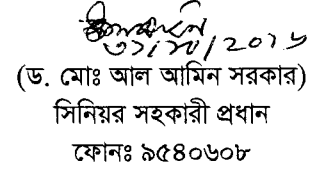 ৩১/১০/২০১৬
(ড. মোঃ আল আমিন সরকার)
সিনিয়র সহকারী প্রধান
ফোনঃ ৯৫৪০৬০৮